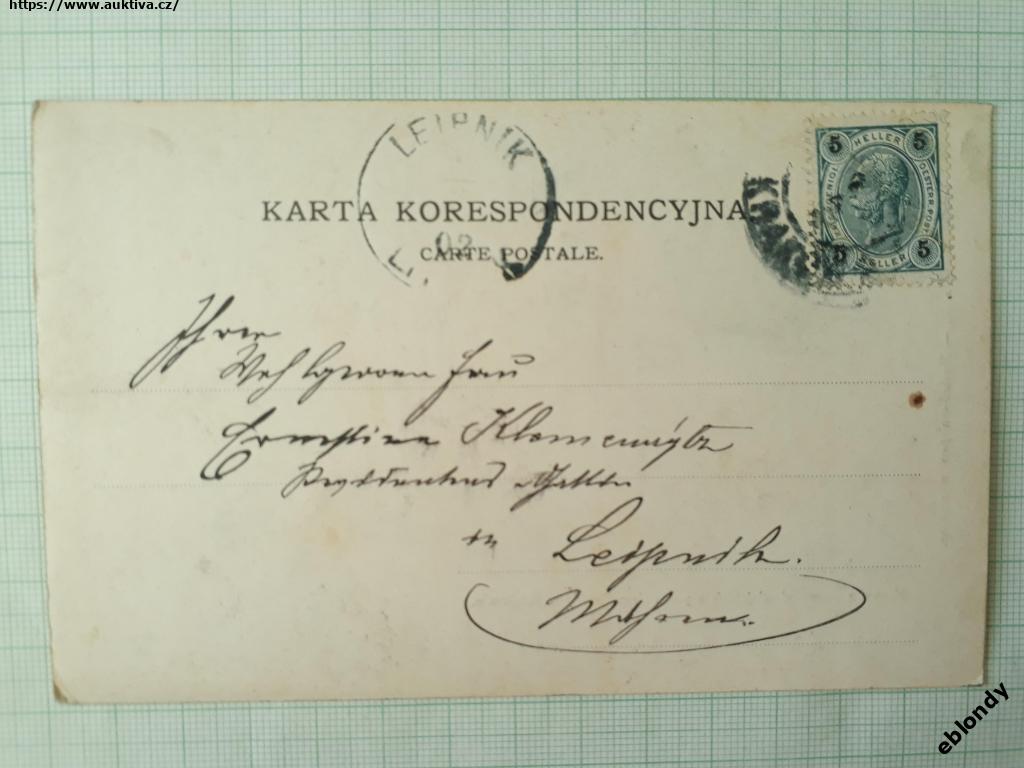 https://www.auktiva.cz/
LEIPNIK
02
KARTA KORESPONDENCYJNA.
CARTE POSTALE.
5 HELLER 5
OESTERR. POST
5 HELLER 5
Ihrer
Wohlgeboren Frau
Ernestine
Präsidentens Gattin
in Leipnik.
Mähren.
eblondy